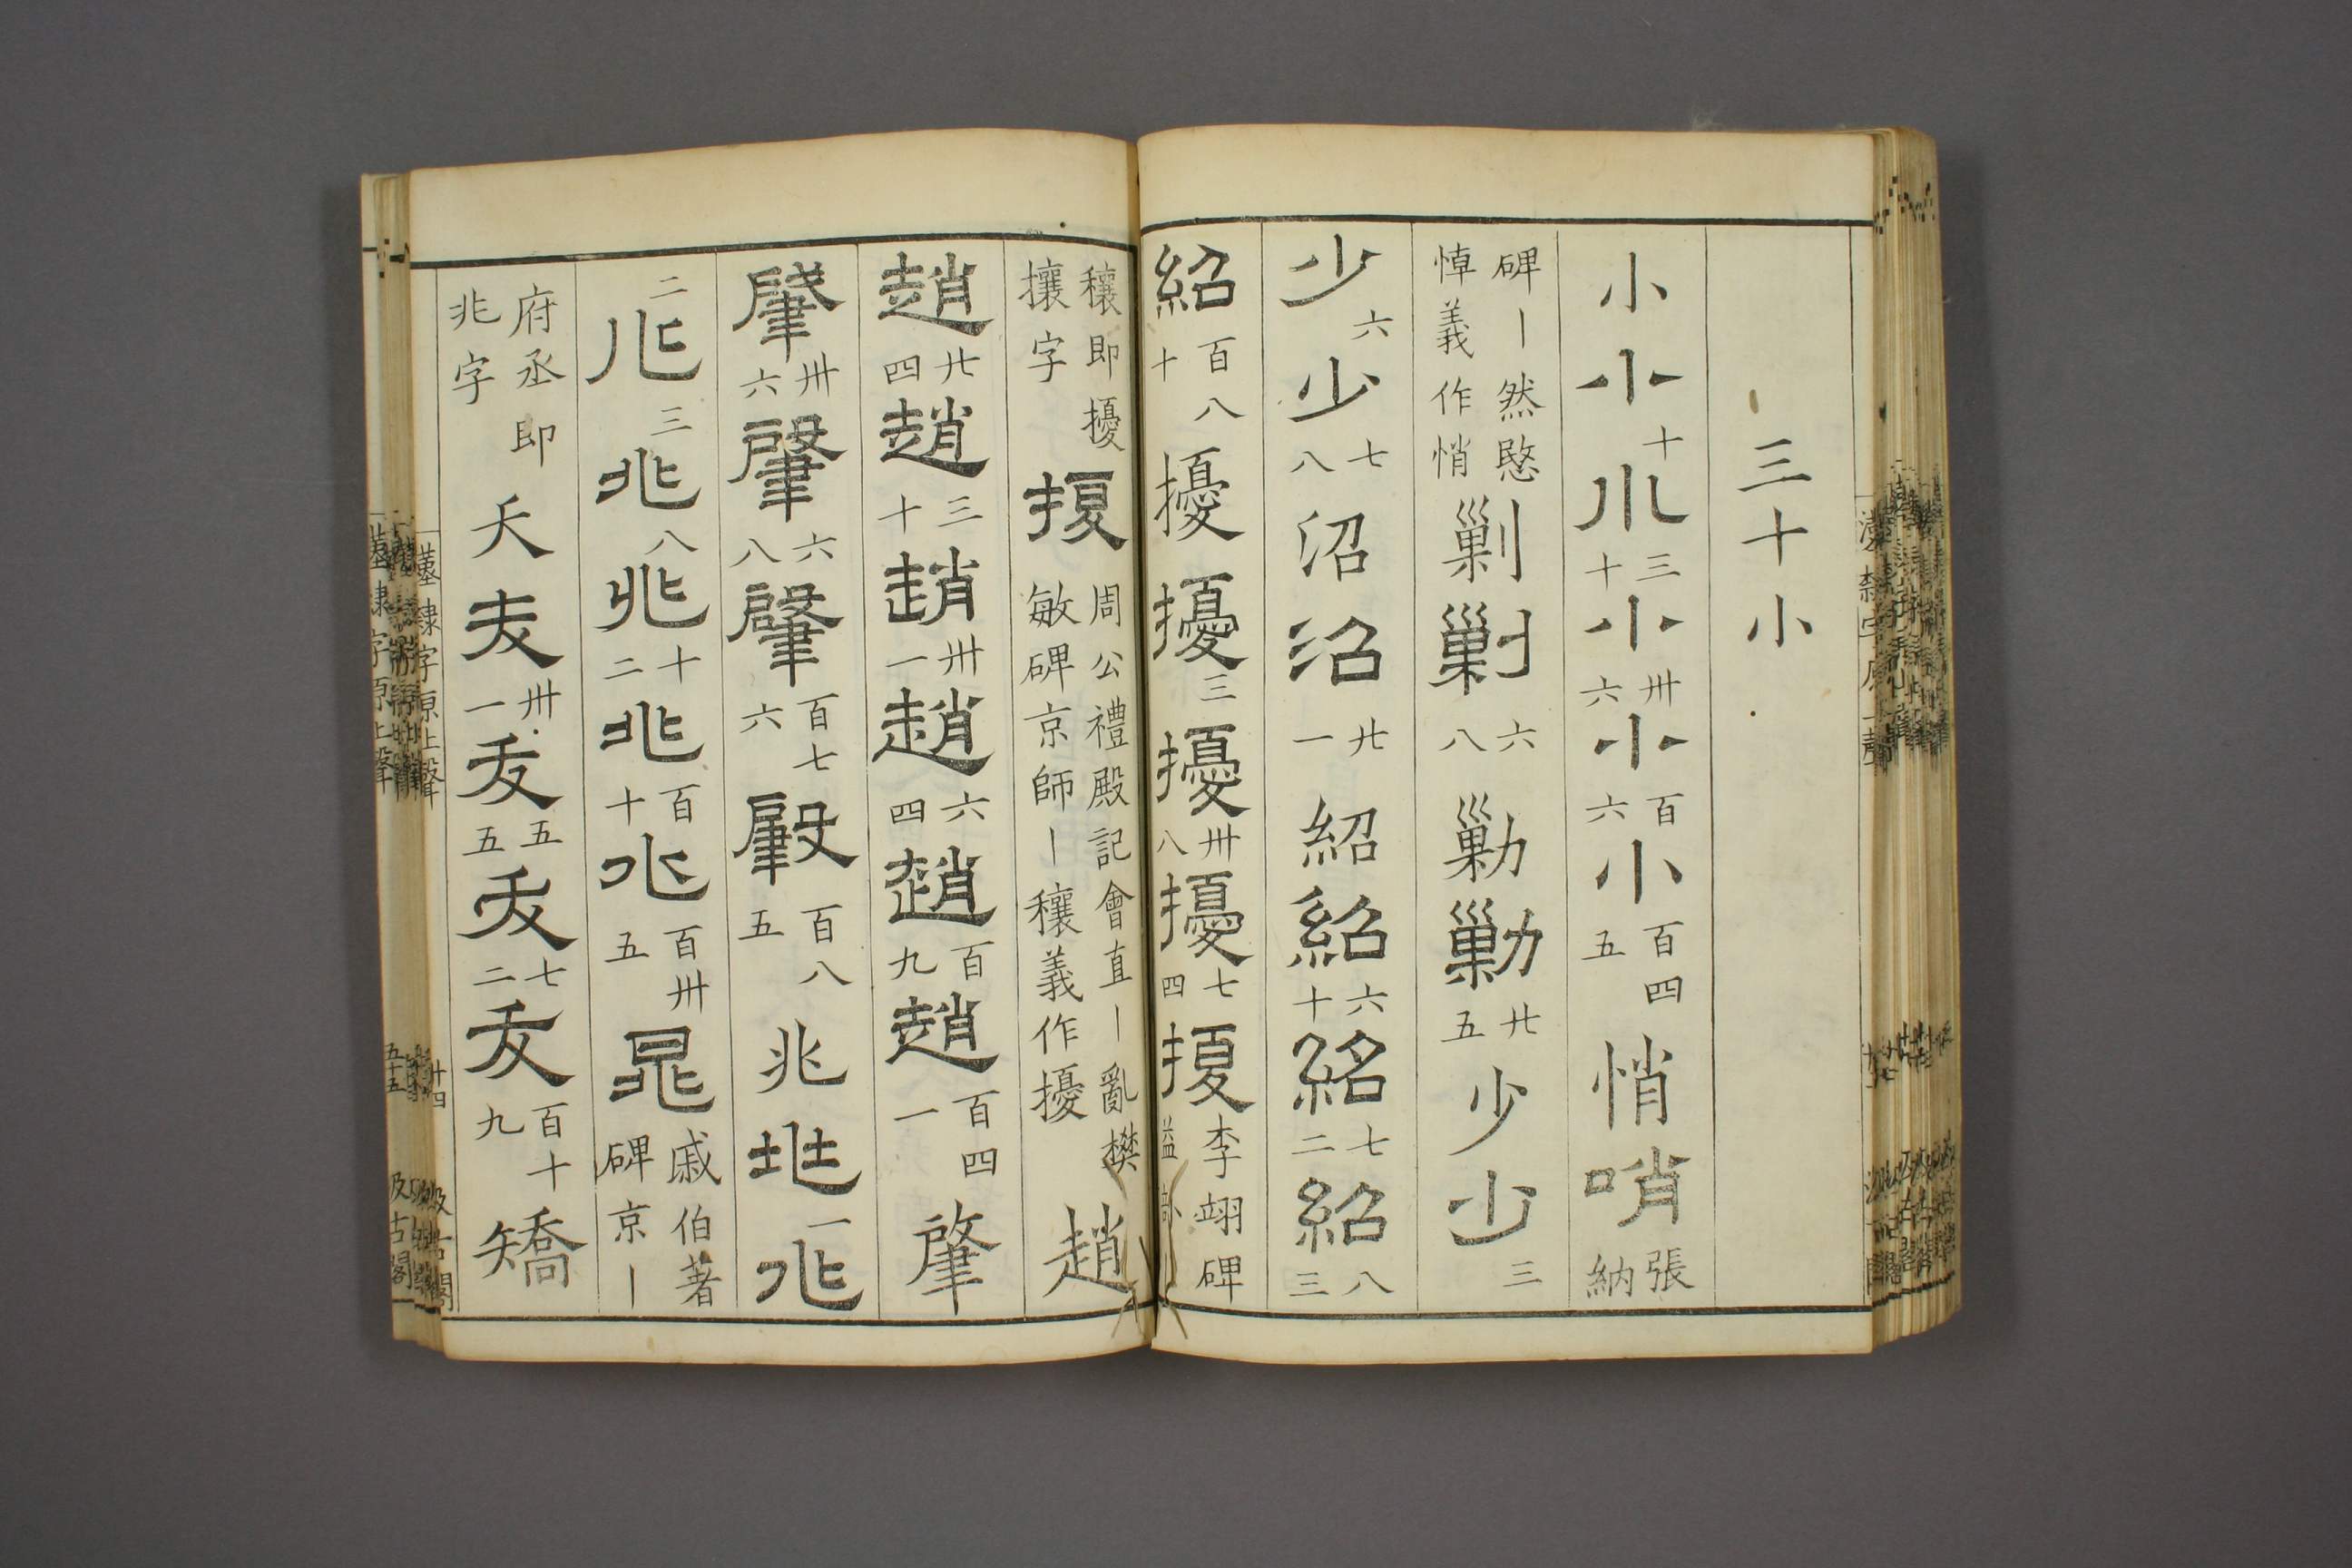 三十小
小小十小三十小卅六小百六小百四五悄哨張納
碑丨然愍悼義作悄剿剿六八勦勦廿五少少三
少六少七八沼沼廿一紹紹六十紹七二紹八三
紹百八十擾擾三擾卅八擾七四擾李翊碑
穰即擾攘字擾周公禮殿記會直丨亂樊敏碑京師丨穰義作擾趙
趙廿四趙三十趙卅一趙六四趙百九趙百四一肇
肇卅六肇六八肇百七六肇百八五兆兆一兆
二兆三兆八兆十二兆百十兆百卅五晁戚伯著碑京丨
府丞即兆字夭夭卅一夭五五夭七二夭百十九矯